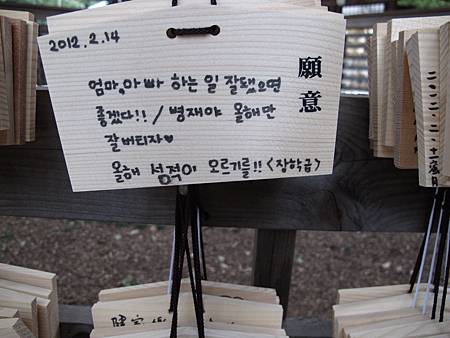 2012.2.14
엄마,아빠 하는 일 잘됐으면
좋겠다!! / 병재야 올해만
잘버티자♥
올해 성적이 오르기를!! <장학금>
願意